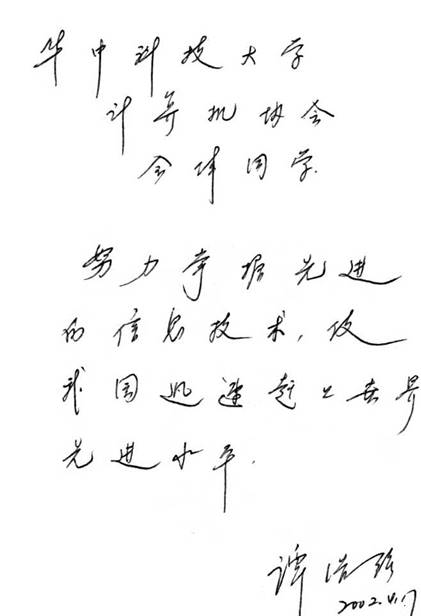 华中科技大学
计算机协会
全体同学
努力掌握先进
的信息技术，使
我国迅速赶上世界
先进水平．
谭浩强
2002.4.17